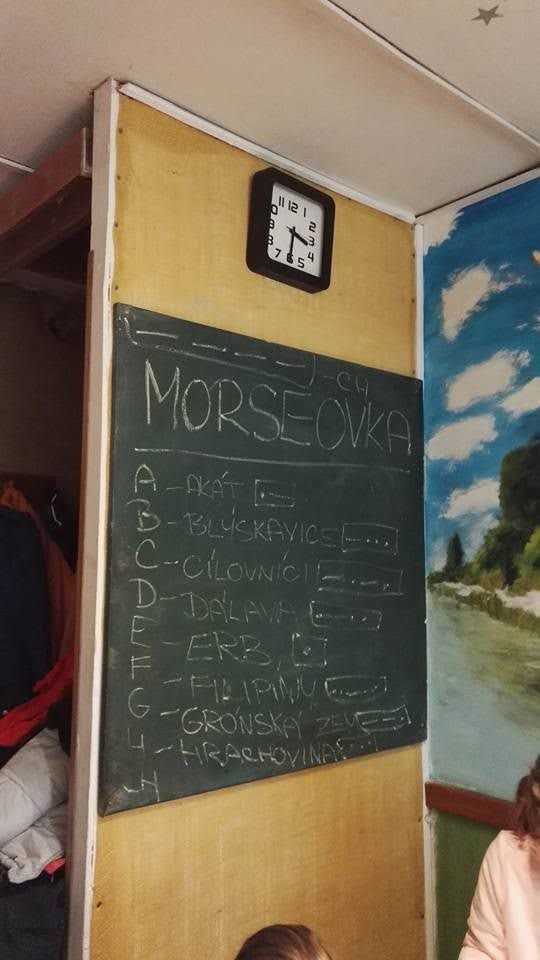 11 12 1
0 2
9 3
8 4
7 6 5
— — — —) - CH
MORSEOVKA
A - AKÁT .—
B - BLÝSKAVICE —...
C - CÍLOVNÍCI —.—.
D - DÁLAVA —..
E - ERB, .
F - FILIPÍNY ..—.
G - GRÓNSKÁ ZEM ——.
H - HRACHOVINA ....